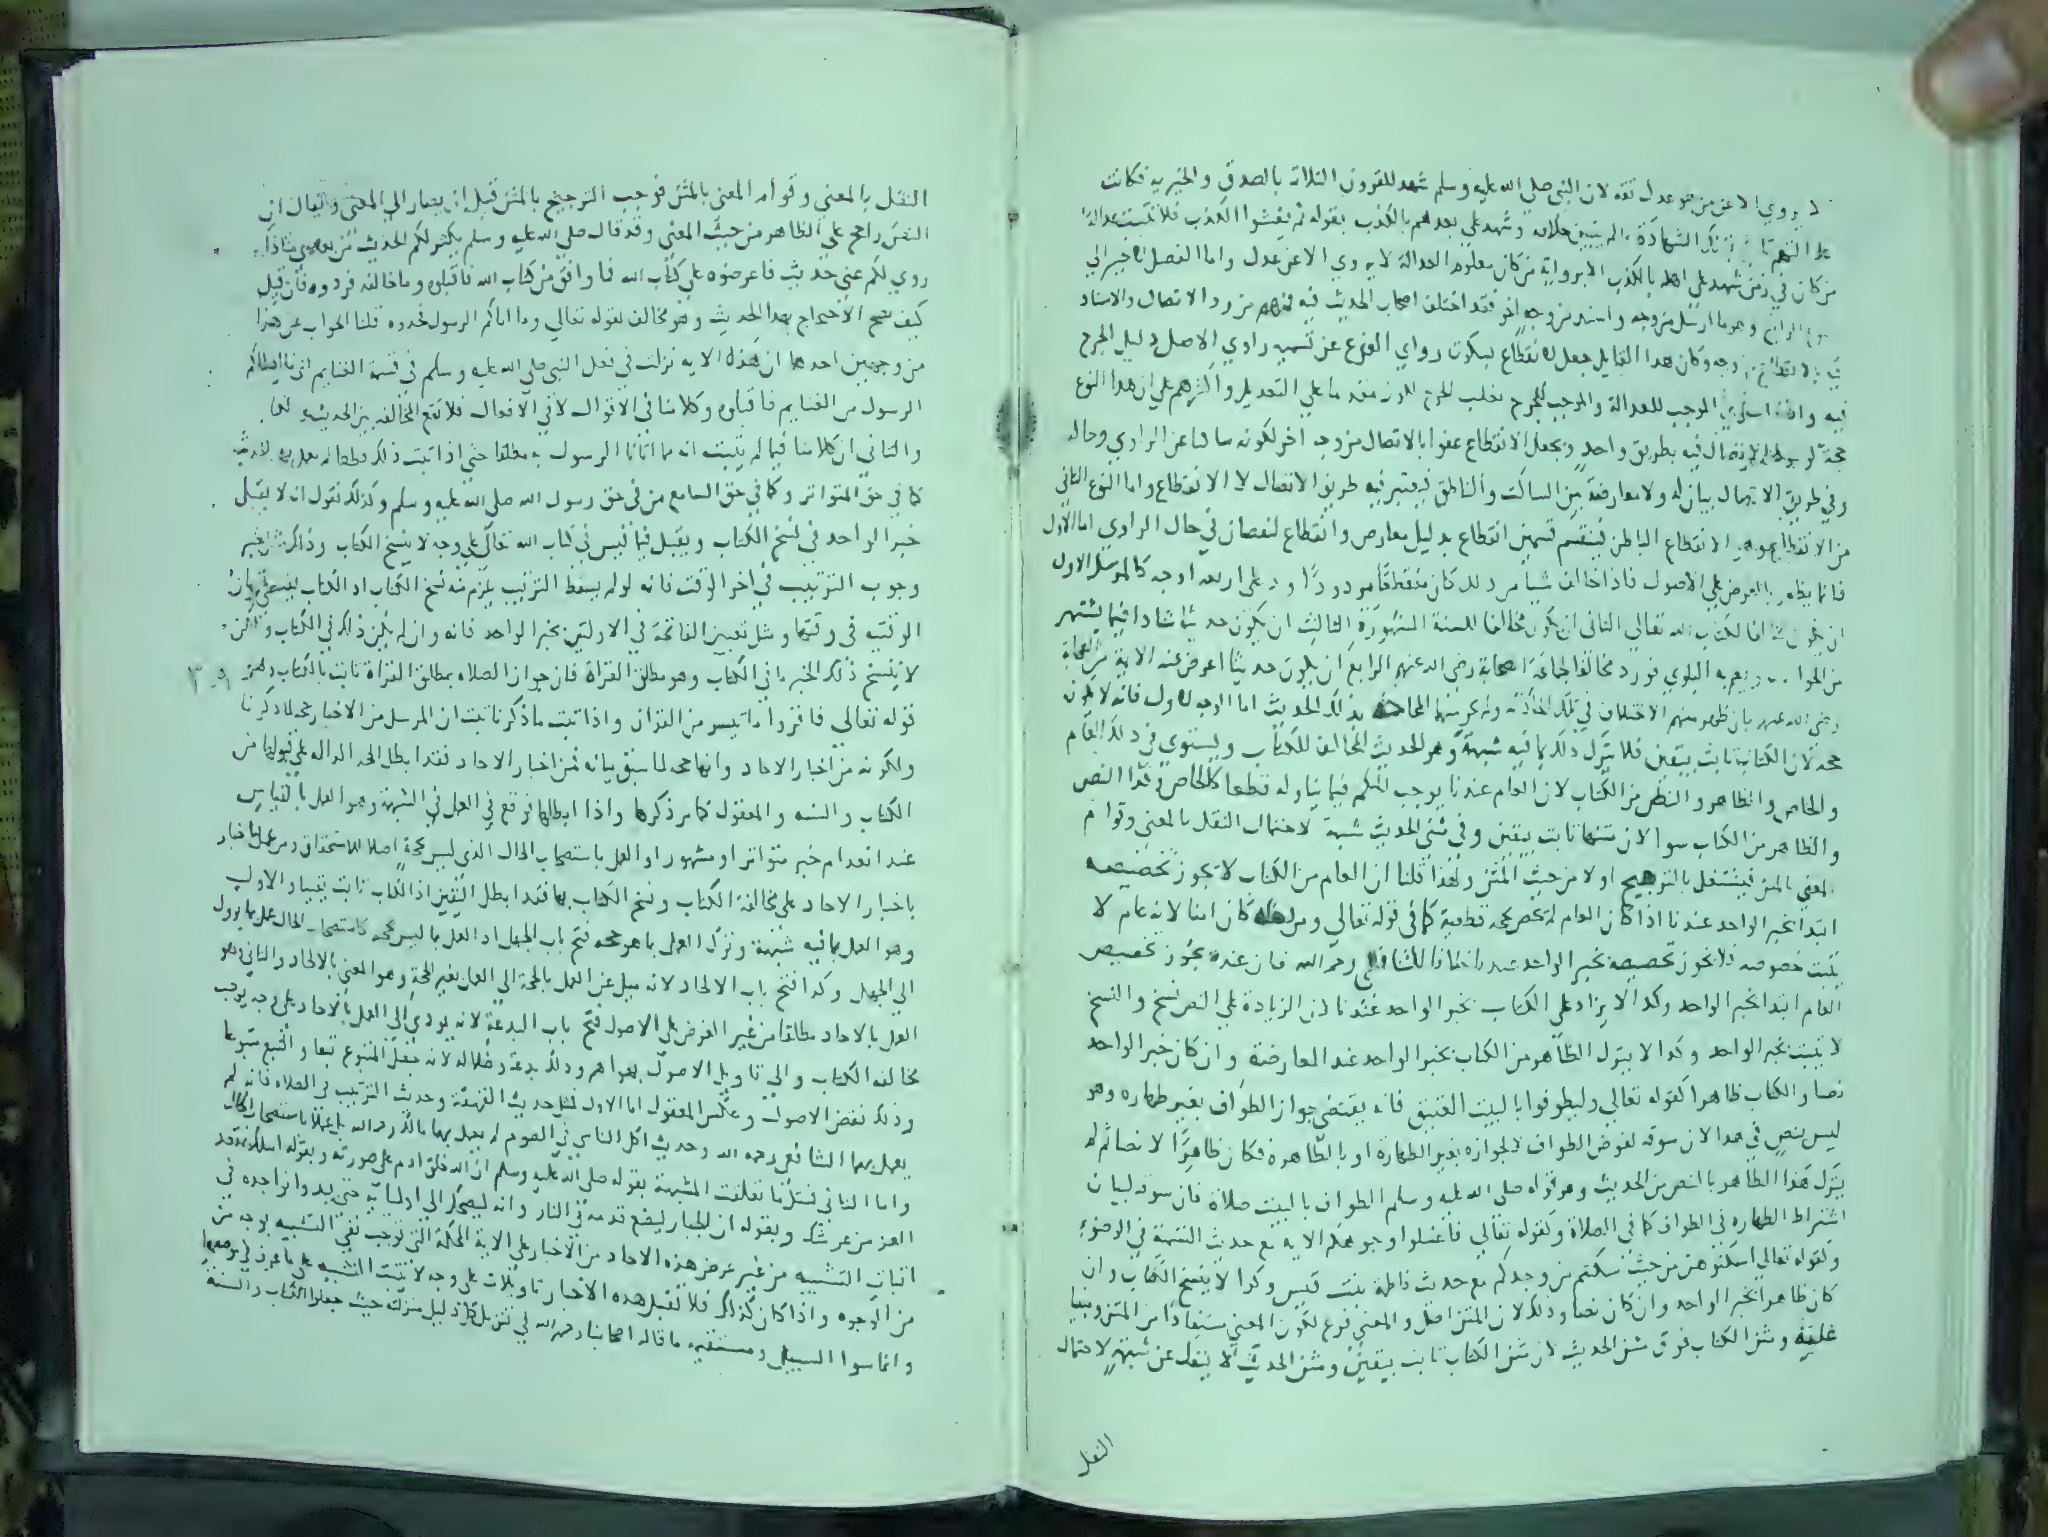 لا يروي الا عن من هو عدل ثقه لان النبي صلى الله عليه وسلم شهد للقرون الثلاثة بالصدق والخيريه فكانت
بتلك الشهادة ما لم يتبين خلافه وشهد على بعدهم بالكذب بقوله ثم يفشوا الكذب فلا تثبت عدالة
من كان في زمن شهد على اهله بالكذب الا برواية من كان معلوم العدالة لا يروي الا عن عدل واما الفصل الاخير الى
الرابع وهو ما ارسل من وجه واسند من وجه اخر فقد اختلف اصحاب الحديث فيه فمنهم من رد الاتصال والاسناد
بالانقطاع من وجه وكان هذا القايل جعل الانقطاع بسكوت رواي الفرع عن تسميه راوي الاصل دليل الجرح
فيه واذا استوي الموجب للعدالة والموجب للجرح يغلب الجرح لكون مقدما على التعديل واكثرهم على ان هذا النوع
حجة لوجود الاتصال فيه بطريق واحد ويجعل الانقطاع عفوا بالاتصال من وجه اخر لكونه ساكتا عن الراوي وحاله
وفي طريق الاتصال بيان له ولا معارضة بين الساكت والناطق فيعتبر فيه طريق الاتصال لا الانقطاع واما النوع الثاني
من الانقطاع وهو الانقطاع الباطن فينقسم قسمين انقطاع بدليل معارض وانقطاع لنقصان في حال الراوي اما الاول
فانما يظهر بالعرض على الاصول فاذا خالف شيا من ذلك كان منقطعا مردودا وذلك على اربعه اوجه كالمرسل الاول
ان يكون مخالفا لكتاب الله تعالى الثاني ان يكون مخالفا للسنة المشهورة الثالث ان يكون حديثا شاذا فيما يشتهر
من الحوادث ويعم به البلوي فورد مخالفا لجماعة الصحابة رضي الله عنهم الرابع ان يكون حديثا اعرض عنه الايمة من الصحابة
رضي الله عنهم بان ظهر منهم الاختلاف في تلك الحادثة ولم يجر بينهم المحاجة بذلك الحديث اما الوجه الاول فانه لا يكون
حجة لان الكتاب ثابت بيقين فلا يترك ذلك بما فيه شبهة وهو الحديث المخالف للكتاب ويستوي في ذلك العام
والخاص والظاهر والنص من الكتاب لان العام عندنا يوجب الحكم فيما يتناوله قطعا كالخاص وكذا النص
والظاهر من الكتاب سوا لان متنها ثابت بيقين وفي متن الحديث شبهة لاحتمال النقل بالمعنى وقوام
المعنى بالمتن فيشتغل بالترجيح اولا من حيث المتن ولهذا قلنا ان العام من الكتاب لا يجوز تخصيصه
ابتدا بخبر الواحد عندنا اذا كان العام لم يخص بحجة قطعية كما في قوله تعالى ومن دخله كان امنا لانه عام لا
يثبت خصوصه فلا يجوز تخصيصه بخبر الواحد عندنا خلافا للشافعي رحمه الله فان عنده يجوز تخصيص
العام ابتدا بخبر الواحد وكذا لا يزاد على الكتاب بخبر الواحد عندنا لان الزيادة على النص نسخ والنسخ
لا يثبت بخبر الواحد وكذا لا يترك الظاهر من الكتاب بخبر الواحد عند المعارضة وان كان خبر الواحد
نصا والكتاب ظاهرا كقوله تعالى وليطوفوا بالبيت العتيق فانه يقتضي جواز الطواف بغير طهاره وهو
ليس بنص في هذا لان سوقه لفرض الطواف لا لجوازه بغير الطهارة او بالطاهرة فكان ظاهرا لا نصا ثم لم
يترك هذا الظاهر بالنص من الحديث وهو قوله صلى الله عليه وسلم الطواف بالبيت صلاة فان سوقه لبيان
اشتراط الطهاره في الطواف كما في الصلاة وكقوله تعالى فاغسلوا وجوهكم الايه مع حديث التسمية في الوضوء
وكقوله تعالى اسكنوهن من حيث سكنتم من وجدكم مع حديث فاطمة بنت قيس وكذا لا ينسخ الكتاب وان
كان ظاهرا بخبر الواحد وان كان نصا وذلك لان المتن اصل والمعنى فرع لكون المعنى مستفادا من المتن ومبنيا
عليه ومتن الكتاب فوق متن الحديث لان متن الكتاب ثابت بيقين ومتن الحديث لا ينفك عن شبهة لاحتمال
النقل
النقل بالمعنى وقوام المعنى بالمتن فوجب الترجيح بالمتن قبل ان يصار الى المعنى ولا يقال ان
النص راجح على الظاهر من حيث المعنى وقد قال صلى الله عليه وسلم يكثر لكم الحديث من بعدي فاذا
روي لكم عني حديث فاعرضوه على كتاب الله فما وافق من كتاب الله فاقبلوه وما خالفه فردوه فان قيل
كيف يصح الاحتجاج بهذا الحديث وهو مخالف لقوله تعالى وما اتاكم الرسول فخذوه قلنا الجواب عن هذا
من وجهين احدهما ان هذه الايه نزلت في فعل النبي صلى الله عليه وسلم في قسمة الغنايم اي ما اعطاكم
الرسول من الغنايم فاقبلوه وكلامنا في الاقوال لا في الافعال فلا تقع المخالفه بين الحديث
والثاني ان كلامنا فيما لم يثبت انه مما اتانا الرسول به مطلقا حتى اذا ثبت ذلك قطعا لم يعمل به
كما في حق المتواتر وكما في حق السامع من في حق رسول الله صلى الله عليه وسلم وكذلك نقول انه لا يقبل
خبر الواحد في نسخ الكتاب ويقبل فيما ليس في كتاب الله تعالى على وجه لا ينسخ الكتاب وذلك مثل خبر
وجوب الترتيب في اخر الوقت فانه لو لم يسقط الترتيب يلزم منه نسخ الكتاب اذ الكتاب يقتضي
الوقتيه في وقتها ومثل تعيين الفاتحة في الاوليين بخبر الواحد فانه وان لم يكن ذلك في الكتاب ولكن
لا ينسخ ذلك الخبر ما في الكتاب وهو مطلق القراة فان جواز الصلاه بمطلق القراة ثابت بالكتاب وهو
٣٠٩
قوله تعالى فاقروا ما تيسر من القران واذا ثبت ما ذكرنا ثبت ان المرسل من الاخبار حجه لما ذكرنا
ولكونه من اخبار الاحاد وانها حجه لما سبق بيانه فمن رد اخبار الاحاد فقد ابطل الحجه الداله على قبولها من
الكتاب والسنه والمعقول كما مر ذكرها واذا ابطلها فوقع في العمل في الشبهة وهو العمل بالقياس
عند انعدام خبر متواتر او مشهور او العمل باستصحاب الحال الذي ليس بحجة اصلا للاستحقاق ومن عمل باخبار
باخبار الاحاد على مخالفة الكتاب ونسخ الكتاب بها فقد ابطل اليقين اذ الكتاب ثابت يقينا والاول
وهو العمل بما فيه شبهة وترك العمل بما هو حجه فتح باب الجهل اذ العمل بما ليس بحجه كاستصحاب الحال عمل بما يؤول
الى الجهل وكذا فتح باب الالحاد لانه ميل عن العمل بالحجة الى العمل بغير الحجة وهو المعنى بالالحاد والثاني وهو
العمل بالاحاد مطلقا من غير العرض على الاصول فتح باب البدعة لانه يودي الى العمل بالاحاد على وجه يوجب
مخالفه الكتاب والى تاويل الاصول بهواهم وذلك بدعة وضلاله لانه جعل المتبوع تبعا والتبع متبوعا
وذلك نقض الاصول وعكس المعقول اما الاول فمثل حديث القهقهة وحديث الترتيب في الصلاه فانه لم
يعمل بهما الشافعي رحمه الله وحديث اكل الناسي في الصوم لم يعمل بهما مالك رحمه الله بل عملا باستصحاب الحال
واما الثاني فمثل ما تعلقت المشبهة بقوله صلى الله عليه وسلم ان الله خلق ادم على صورته وبقوله
العز من عرشك وبقوله ان الجبار ليضع قدمه في النار وانه ليضحك الى اوليائه حتى يبدو نواجذه في
اثبات التشبيه من غير عرض هذه الاحاد من الاخبار على الاية المحكمة التي توجب نفي التشبيه بوجه من
من الوجوه واذا كان كذلك فلا تقبل هذه الاخبار تاويلات على وجه لا يثبت التشبيه على ما عرف في موضعها
وانما سوا السبيل ومستقيمه ما قاله اصحابنا رحمهم الله في تنزيل كل دليل منزلته حيث جعلوا الكتاب والسنة